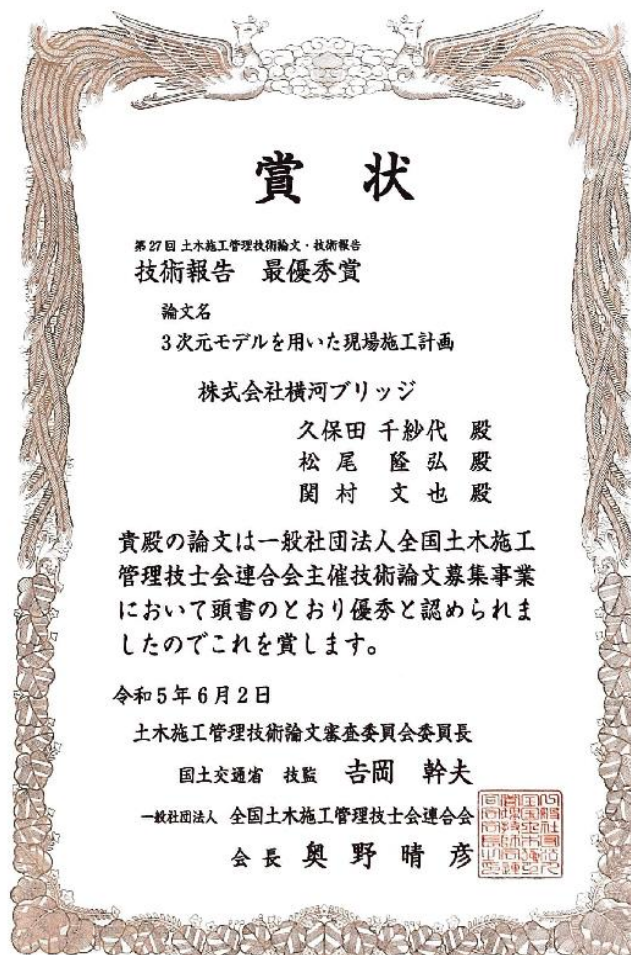 賞 状
第27回 土木施工管理技術論文・技術報告
技術報告 最優秀賞
論文名
3次元モデルを用いた現場施工計画
株式会社横河ブリッジ
久保田 千紗代 殿
松尾 隆弘 殿
関村 文也 殿
貴殿の論文は一般社団法人全国土木施工
管理技士会連合会主催技術論文募集事業
において頭書のとおり優秀と認められま
したのでこれを賞します。
令和5年6月2日
土木施工管理技術論文審査委員会委員長
国土交通省 技監 𠮷岡 幹夫
一般社団法人 全国土木施工管理技士会連合会
会長 奥野晴彦